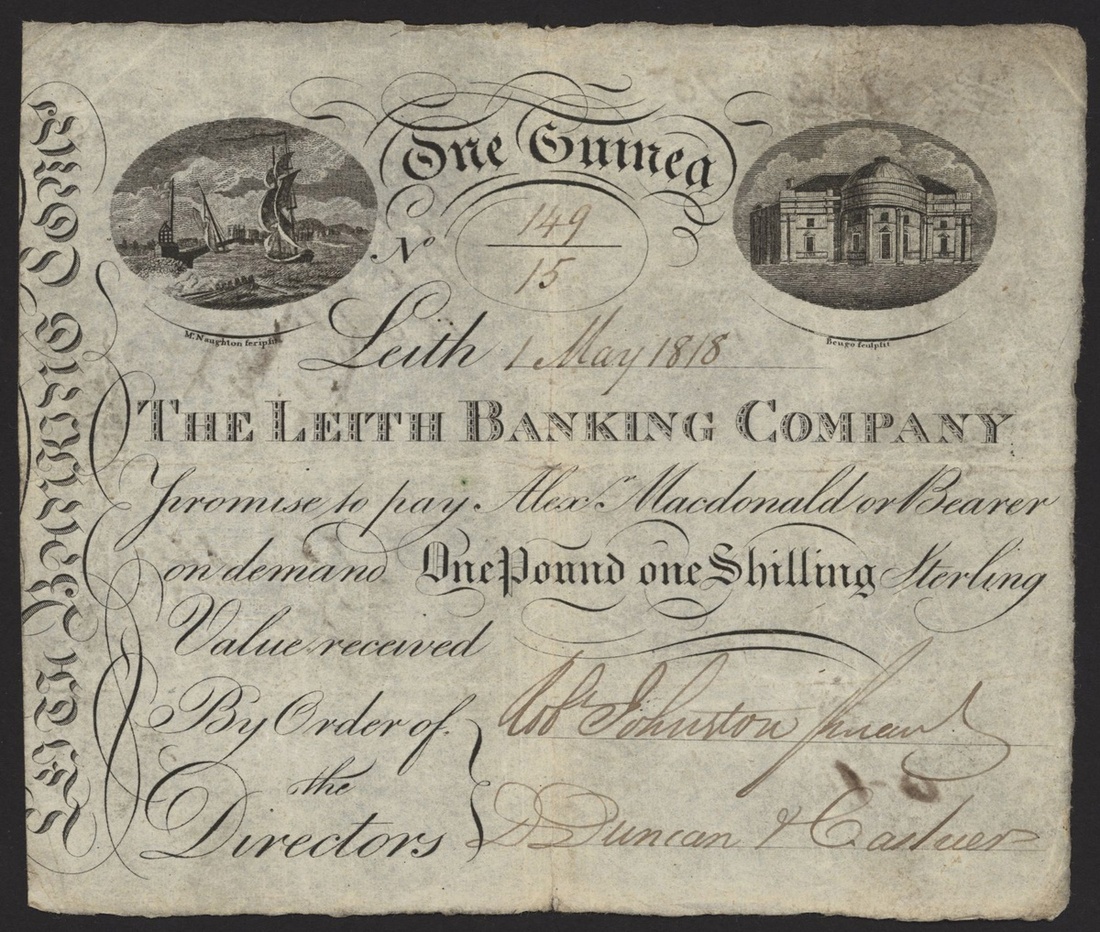 LEITH BANKING COMPY
One Guinea
No 149
15
Mc. Naughton scripsit
Beugo sculpsit
Leith 1 May 1818
THE LEITH BANKING COMPANY
promise to pay Alexr. Macdonald or Bearer
on demand One Pound one Shilling Sterling
Value received
By Order of
the
Directors
Robt Johnston
D Duncan